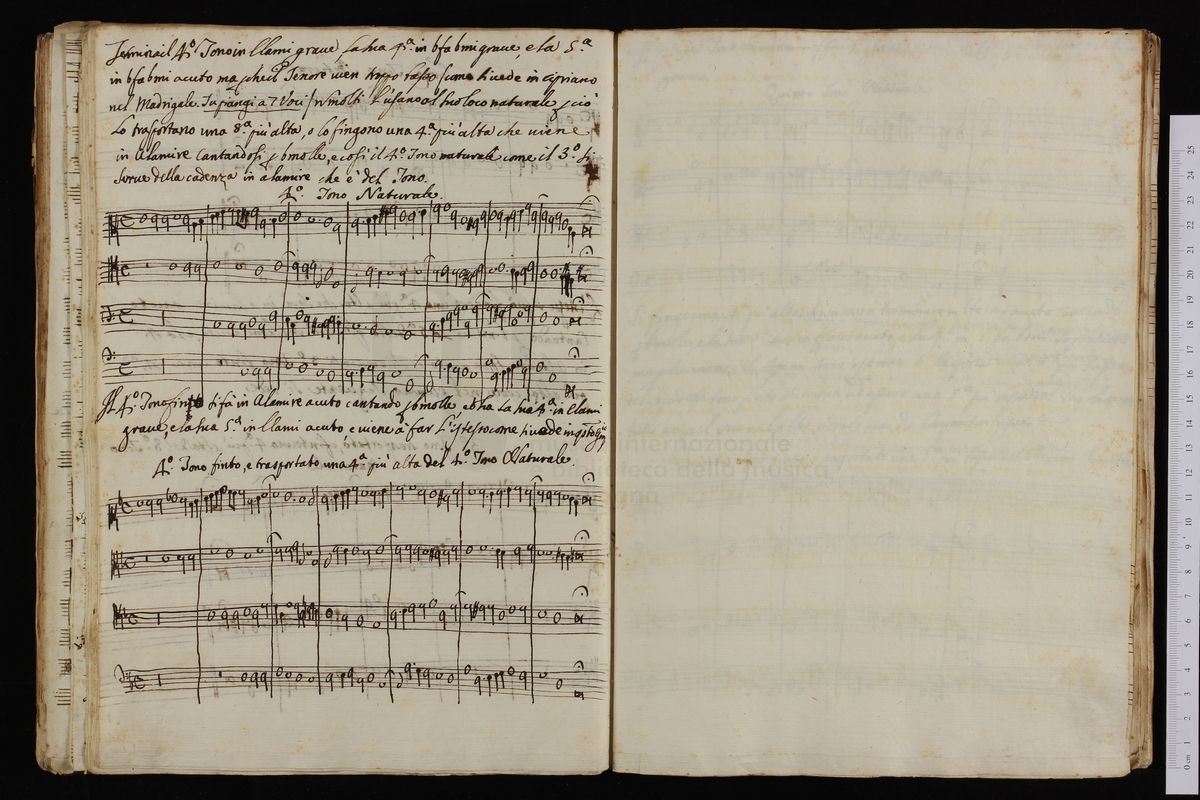 Termina il 4.º Tono in Elami graue la sua 4.ª in bfabmi graue, e la 5.ª
in bfabmi acuto ma perche il Tenore uien troppo basso come si uede in Cipriano
nel Madrigale. a 7 Voci molti l'usano al suo loco naturale, e ciò
Lo trasportano una 8.ª più alta, o lo fingono una 4.ª più alta che uiene
in Alamire Cantandosi p bmolle, e cosi il 4.º Tono naturale come il 3.º si
serue della cadenza in alamire che è del Tono.
4.º Tono Naturale.
Il 4.º Tono finto si fà in Alamire acuto cantando p bmolle ed ha la sua 4.ª in Elami
graue, e la sua 5.ª in Elami acuto e uiene à far l'istesso come si uede in qsto
4.º Tono finto, e trasportato una 4.ª più alta del 4.º Tono Naturale
internazionale
biblioteca della musica
0 cm 1 2 3 4 5 6 7 8 9 10 11 12 13 14 15 16 17 18 19 20 21 22 23 24 25